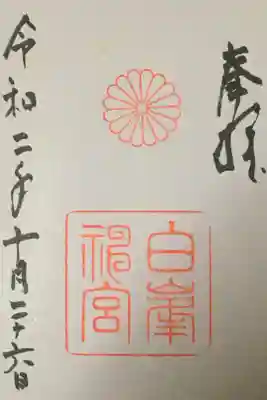 奉拝
白峯
神宮
令和二年十月二十六日